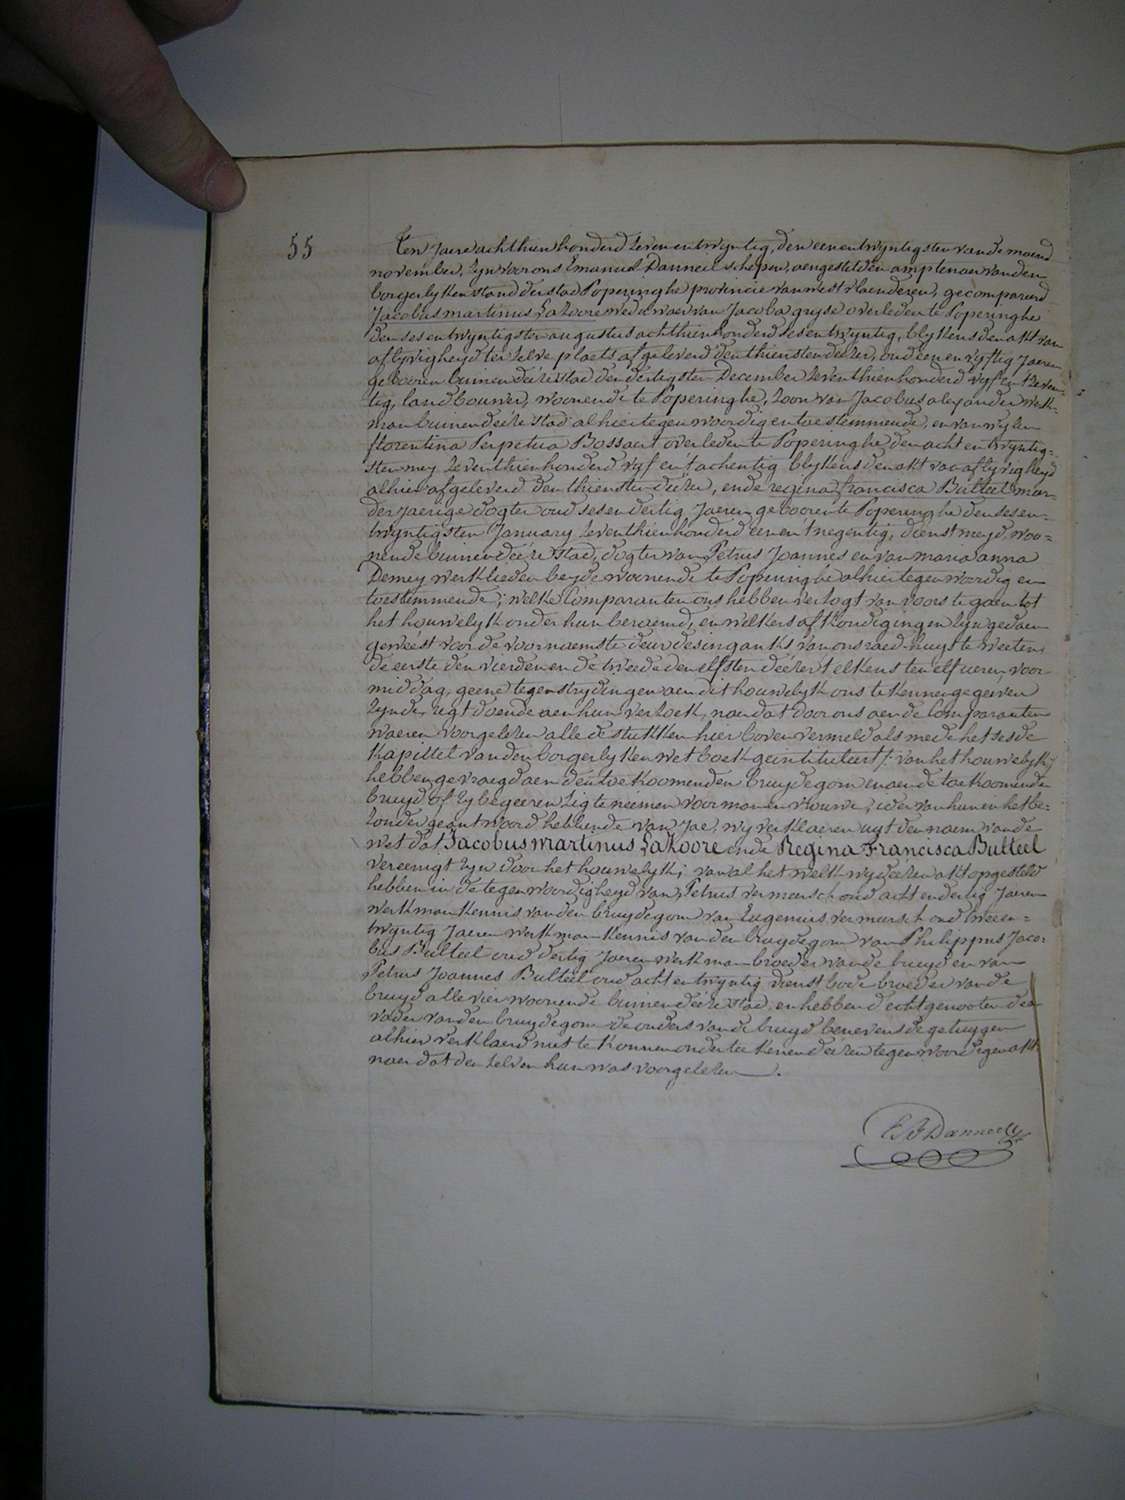 55
Ten Jaere achthien honderd zeven en twyntig, den een en twyntigsten van de maend
november, zyn voor ons Emanuel Danneel schepen, aengestelden amptenaer van den
borgerlyken stand der stad Poperinghe provincie van westvlaenderen, gecompareerd
Jacobus martinus Lakoore weduwaer van Jacoba gryse overleden te Poperinghe
den ses en twyntigsten augustus achthien honderd ses en twyntig, blykens den akt van
aflyvigheyd ter zelve plaets afgeleverd den thiensten dezer, oud een en vyftig Jaeren
gebooren binnen deeze stad den dertigsten December zeventhien honderd vyf en zeven-
tig, landbouwer, woonende te Poperinghe, zoon van Jacobus alexander werk-
man binnen deeze stad alhier tegenwoordig en toestemmende, en van wylen
florentina Perpetua Bossaert overleden te Poperinghe den acht en twyntig-
sten mey zeventhien honderd vyf en tachentig blykens den akt van aflyvigheyd
alhier afgeleverd den thiensten deezer, ende regina francisca Bulteel meer-
derjaerige dogter oud ses en dertig Jaeren gebooren te Poperinghe den ses en
twyntigsten January zeventhien honderd een en tnegentig, dienstmeyd, woo-
nende binnen deeze stad, dogter van Petrus Joannes en van maria anna
Demey werklieden beyde woonende te Poperinghe alhier tegenwoordig en
toestemmende; welke Comparanten ons hebben verzogt van voors te gaen tot
het houwelyk onder hun beraemd, en welkers afkondigingen zyn gedaen
geweest voor de voornaemste deur des ingankts van ons raedhuys te weeten
de eerste den vierden en de tweede den elfsten deezer telkens ten elf ueren voor
middag, geene tegenstrydingen aen dit houwelyk ons te kennen gegeven
zynde, regt doende aen hun verzoek, naer dat door ons aen de Comparanten
waeren voorgelezen alle de stukken hier boven vermeld als mede het sesde
kapittel van den borgerlyken wetboek geintituleert /: van het houwelyk:/
hebben gevraegd aen den toekoomenden bruydegom en aen de toekoomende
bruyd of zy begeeren zig te neemen voor man en vrouwe, ieder van hun in het be-
zonder geantwoord hebbende van Jae, wy verklaeren uyt den naem van de
wet dat Jacobus martinus Lakoore ende Regina Francisca Bulteel
vereenigt zyn door het houwelyk; van al het welk wy deezen akt opgesteld
hebben in de tegenwoordigheyd van Petrus vermersch oud acht en dertig Jaeren
werkman kennis van den bruydegom van Eugenius vermersch oud twee en
twyntig Jaeren werkman kennis van den bruydegom van Philippus Jaco-
bus Bulteel oud dertig Jaeren werkman broeder van de bruyd en van
Petrus Joannes Bulteel oud acht en twyntig dienstbode broeder van de
bruyd alle vier woonende binnen deeze stad, en hebben d'echtgenooten den
vader van den bruydegom de ouders van de bruyd benevens de getuygen
alhier verklaerd niet te konnen onderteekenen deezen tegenwoordigen akt
naer dat den zelven hun was voorgelezen.
E J Danneel